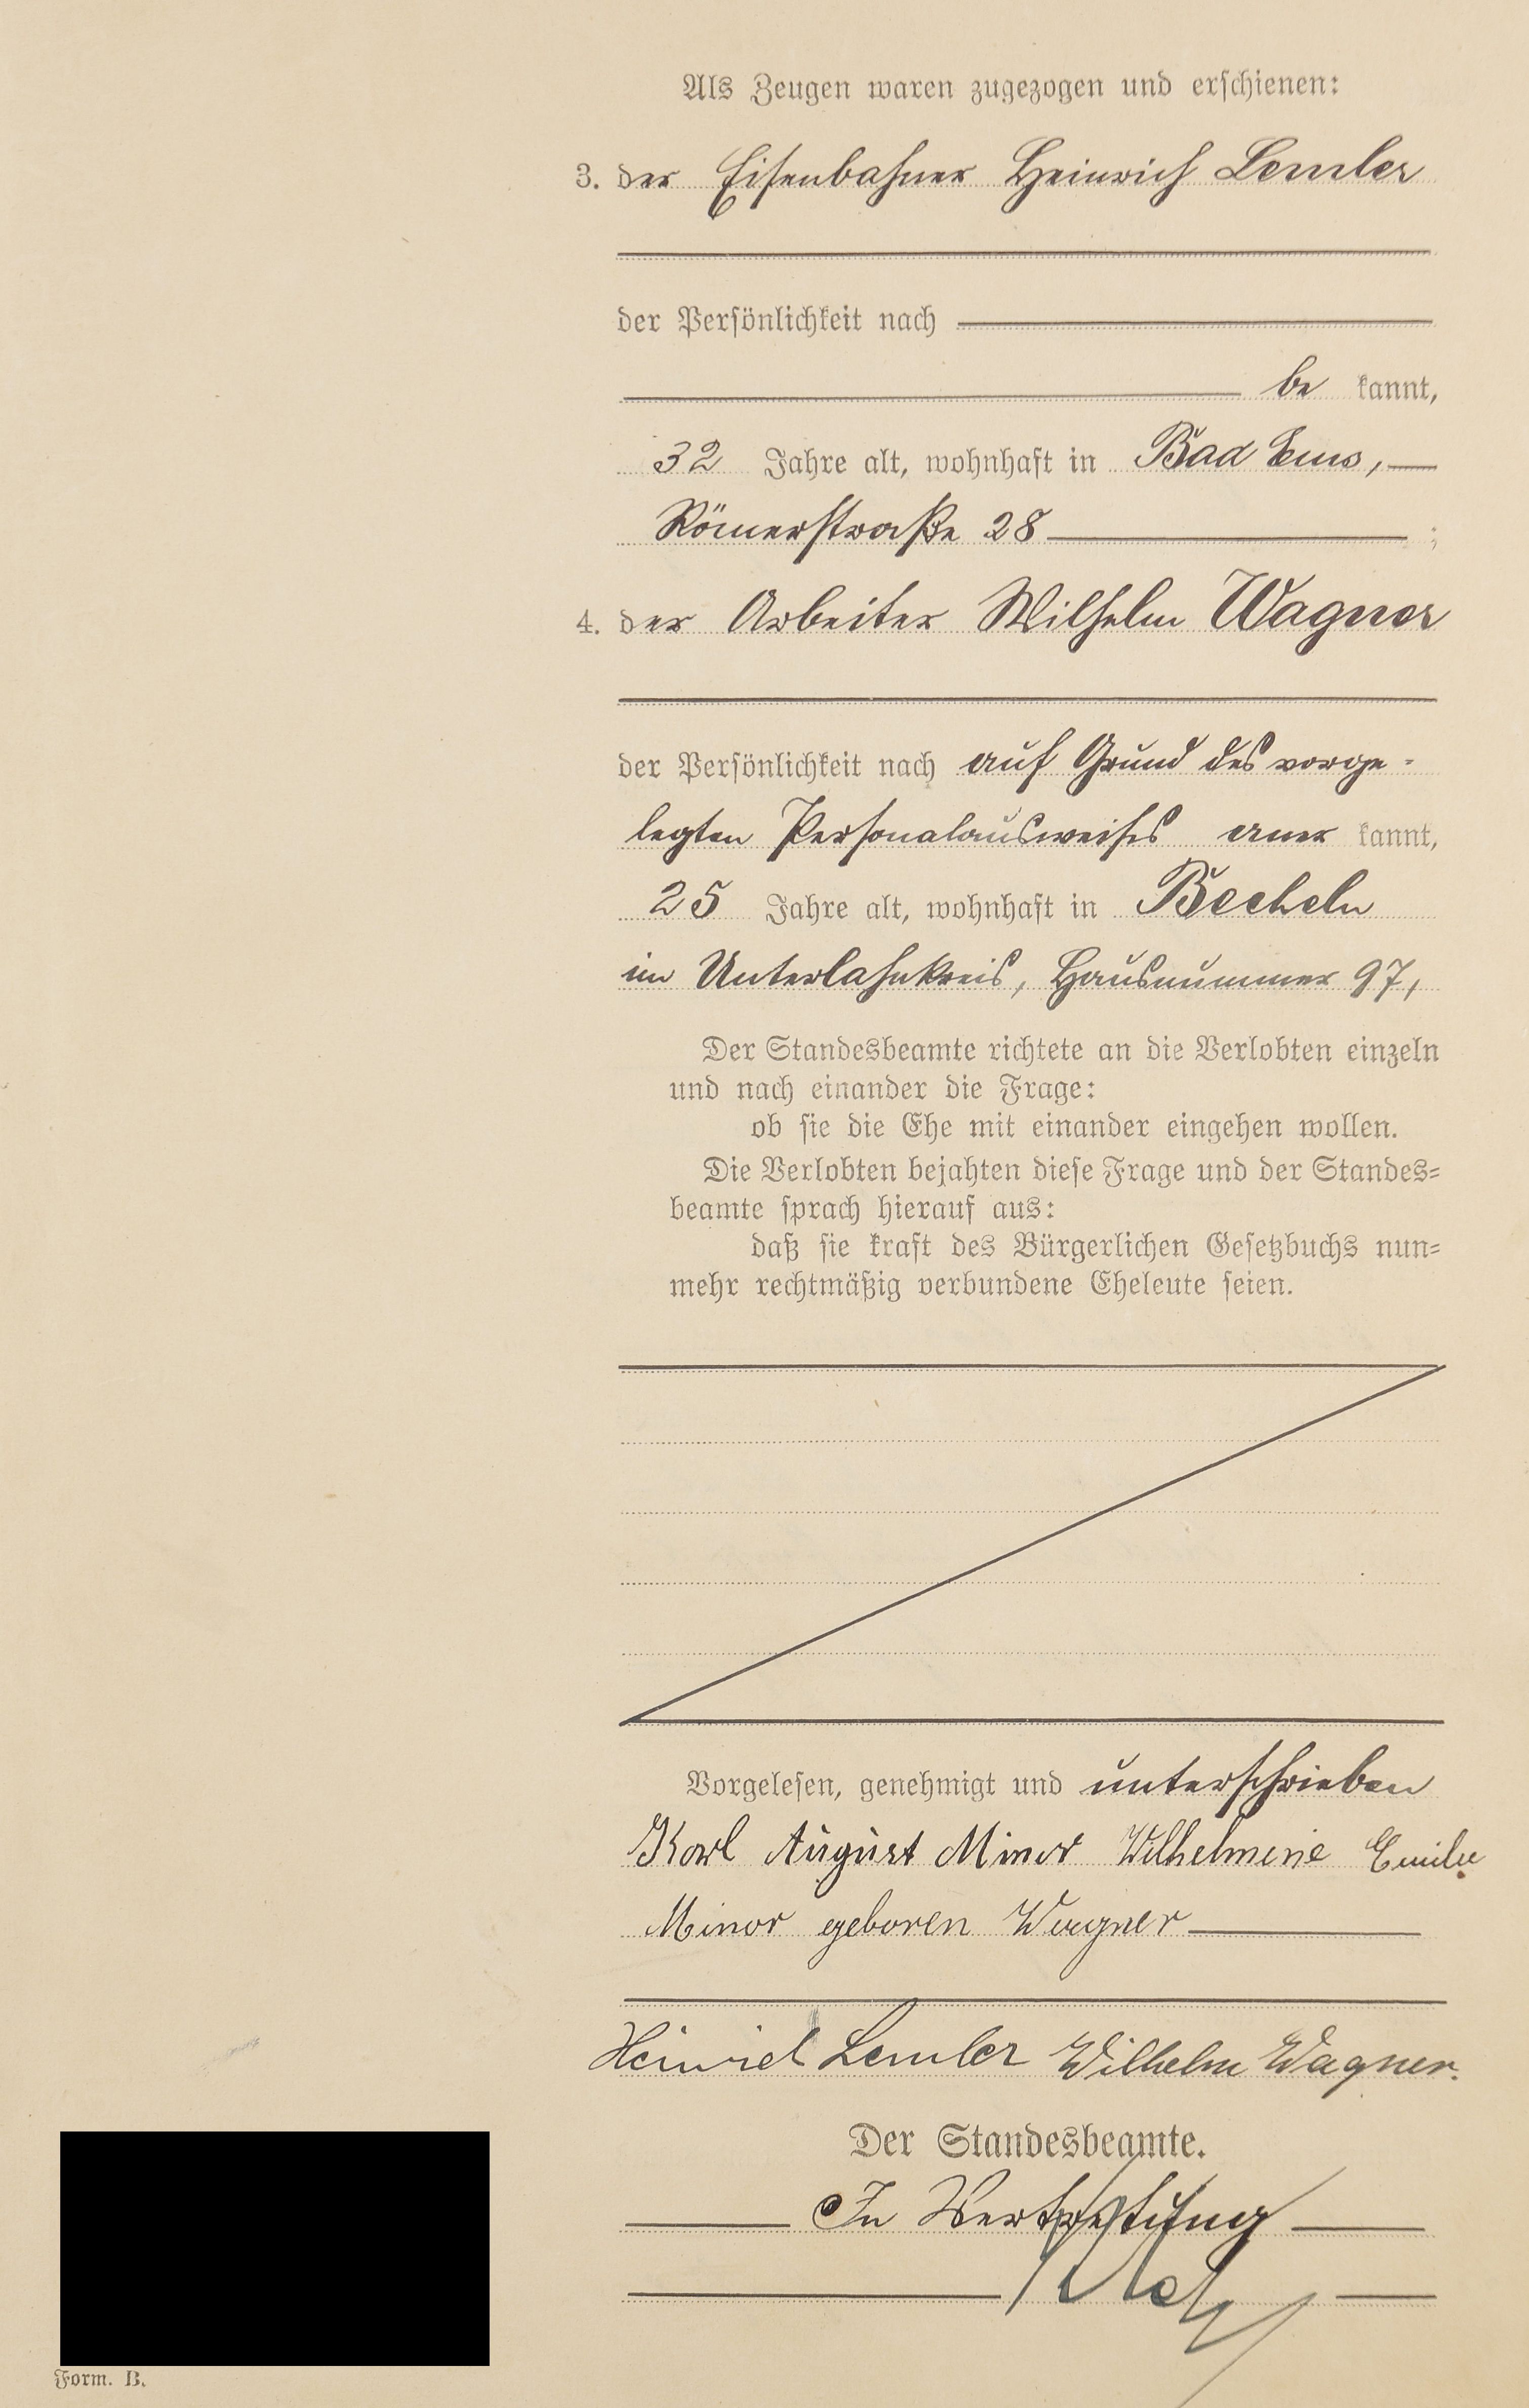 Als Zeugen waren zugezogen und erschienen:
3. der Eisenbahner Heinrich Lemler
der Persönlichkeit nach
be kannt,
32 Jahre alt, wohnhaft in Bad Ems,
Römerstraße 28 ;
4. der Arbeiter Wilhelm Wagner
der Persönlichkeit nach auf Grund des vorge-
legten Personalausweises aner kannt,
25 Jahre alt, wohnhaft in Becheln
im Unterlahnkreis, Hausnummer 97,
Der Standesbeamte richtete an die Verlobten einzeln
und nach einander die Frage:
ob sie die Ehe mit einander eingehen wollen.
Die Verlobten bejahten diese Frage und der Standes-
beamte sprach hierauf aus:
daß sie kraft des Bürgerlichen Gesetzbuchs nun-
mehr rechtmäßig verbundene Eheleute seien.
Vorgelesen, genehmigt und unterschrieben
Karl August Minor Wilhelmine Emilie
Minor geboren Wagner
Heinrich Lemler Wilhelm Wagner.
Der Standesbeamte.
In Vertretung
Form. B.